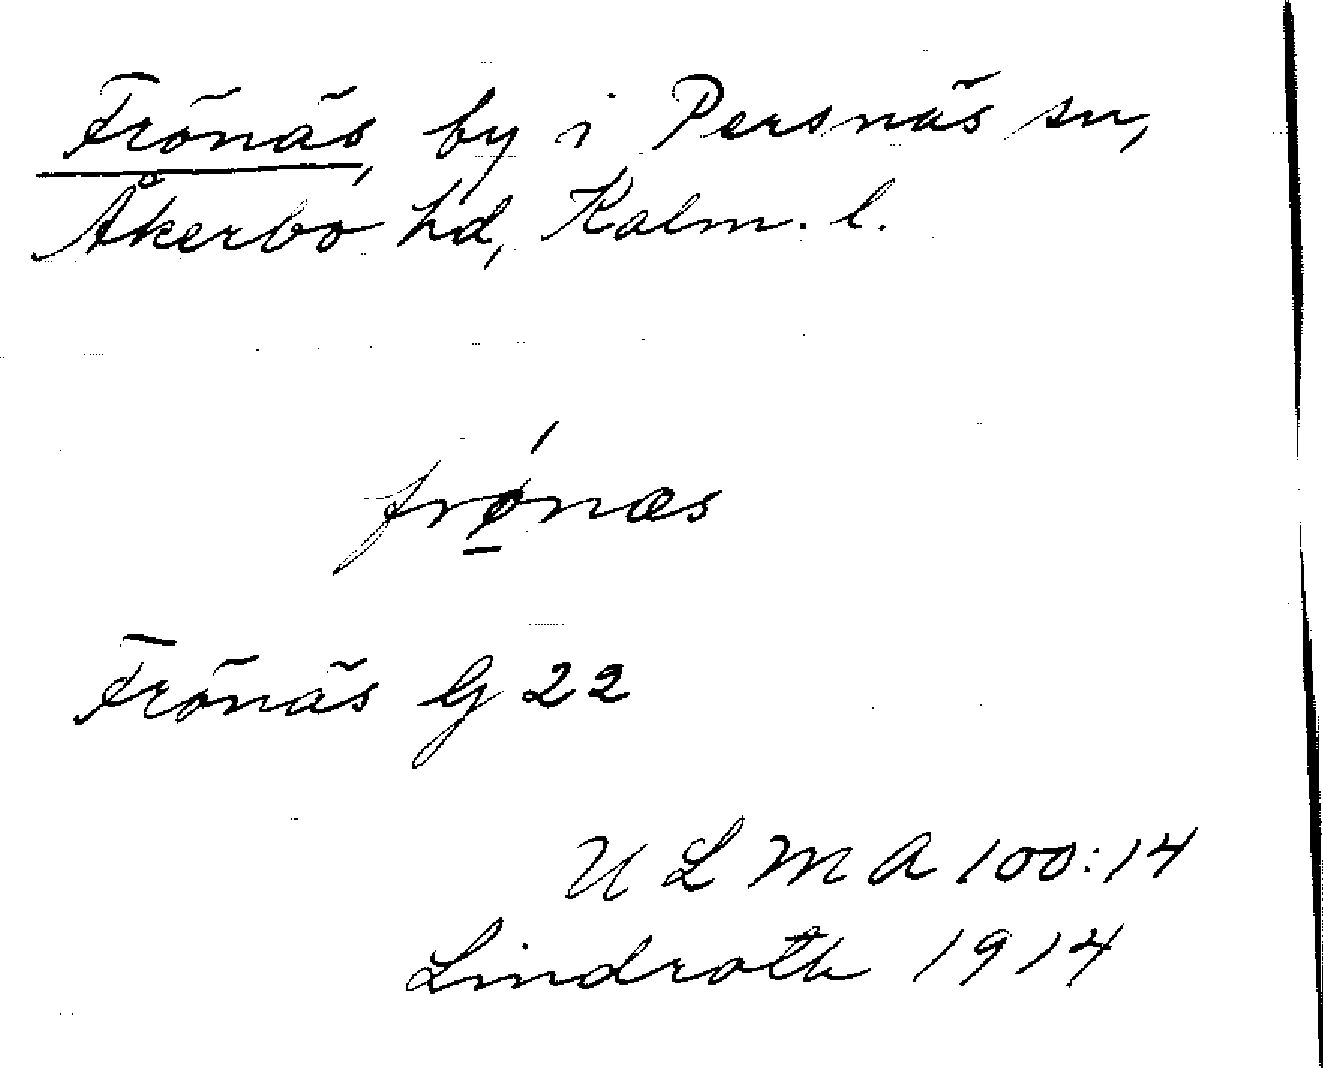 Frönäs, by i Persnäs sn,
Åkerbo hd, Kalm. l.
frǿ̱næs
Frönäs G 22
ULMA 100:14
Lindroth 1914